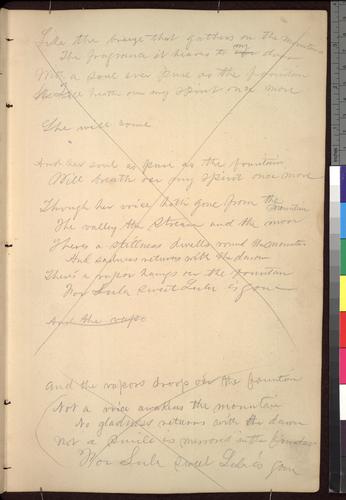 Like the breeze that gathers on the mountain
The fragrance it leaves to my door
With a soul ever pure as the fountain
She'll breath over my spirit once more
She will come
And her soul as pure as the fountain
Will breath over my spirit once more
Though her voice hath gone from the mountain
The valley the stream and the moor
There's a stillness dwells round the mountain
And sadness returns with the dawn
There's a vapor hangs over the fountain
For Lula sweet Lula is gone
And the vapo
And the vapors droop over the fountain
Not a voice awakens the mountain
No gladness returns with the dawn
Not a smile is mirrored in the fountain
For Lula sweet Lula's gone